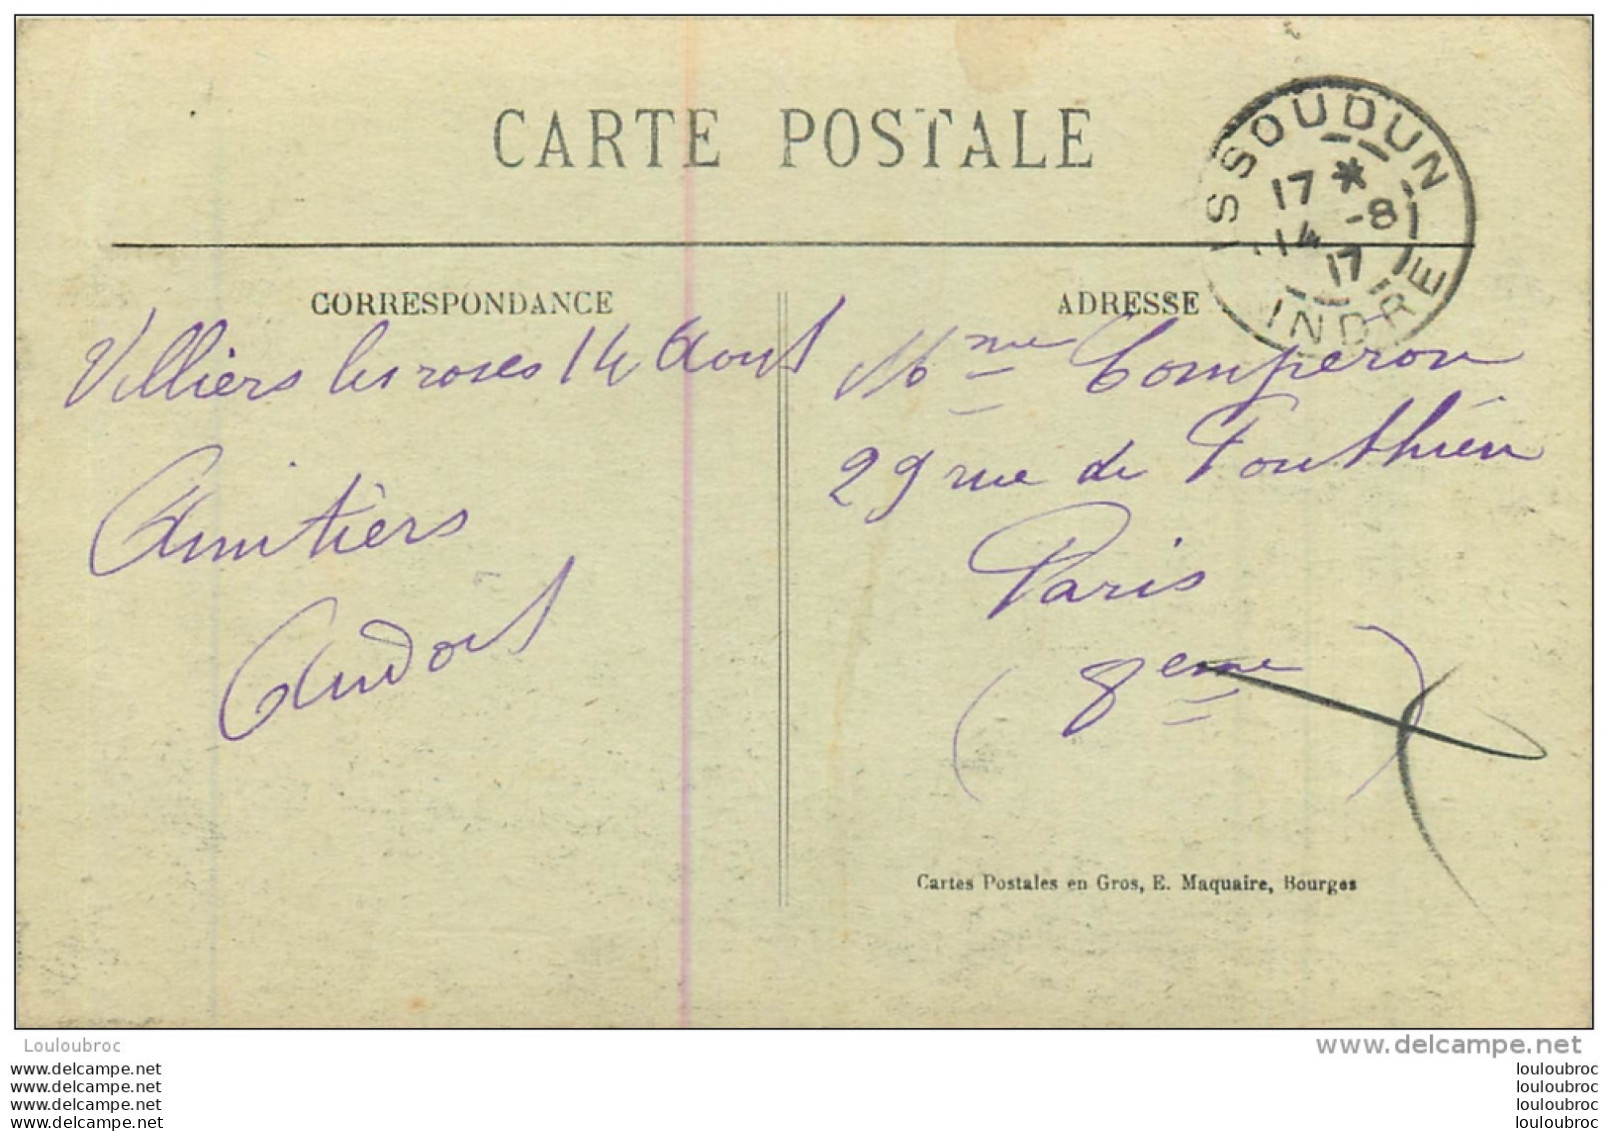 CARTE POSTALE
ISSOUDUN
17 *
14 -8
17
INDRE
CORRESPONDANCE
ADRESSE
Villiers les roses 14 Aout
Amitiers
Audoit
Mme Comperon
29 rue de Ponthieu
Paris
(8eme)
Cartes Postales en Gros, E. Maquaire, Bourges
Louloubroc
www.delcampe.net
www.delcampe.net
www.delcampe.net
www.delcampe.net
www.delcampe.net
louloubroc
louloubroc
louloubroc
louloubroc